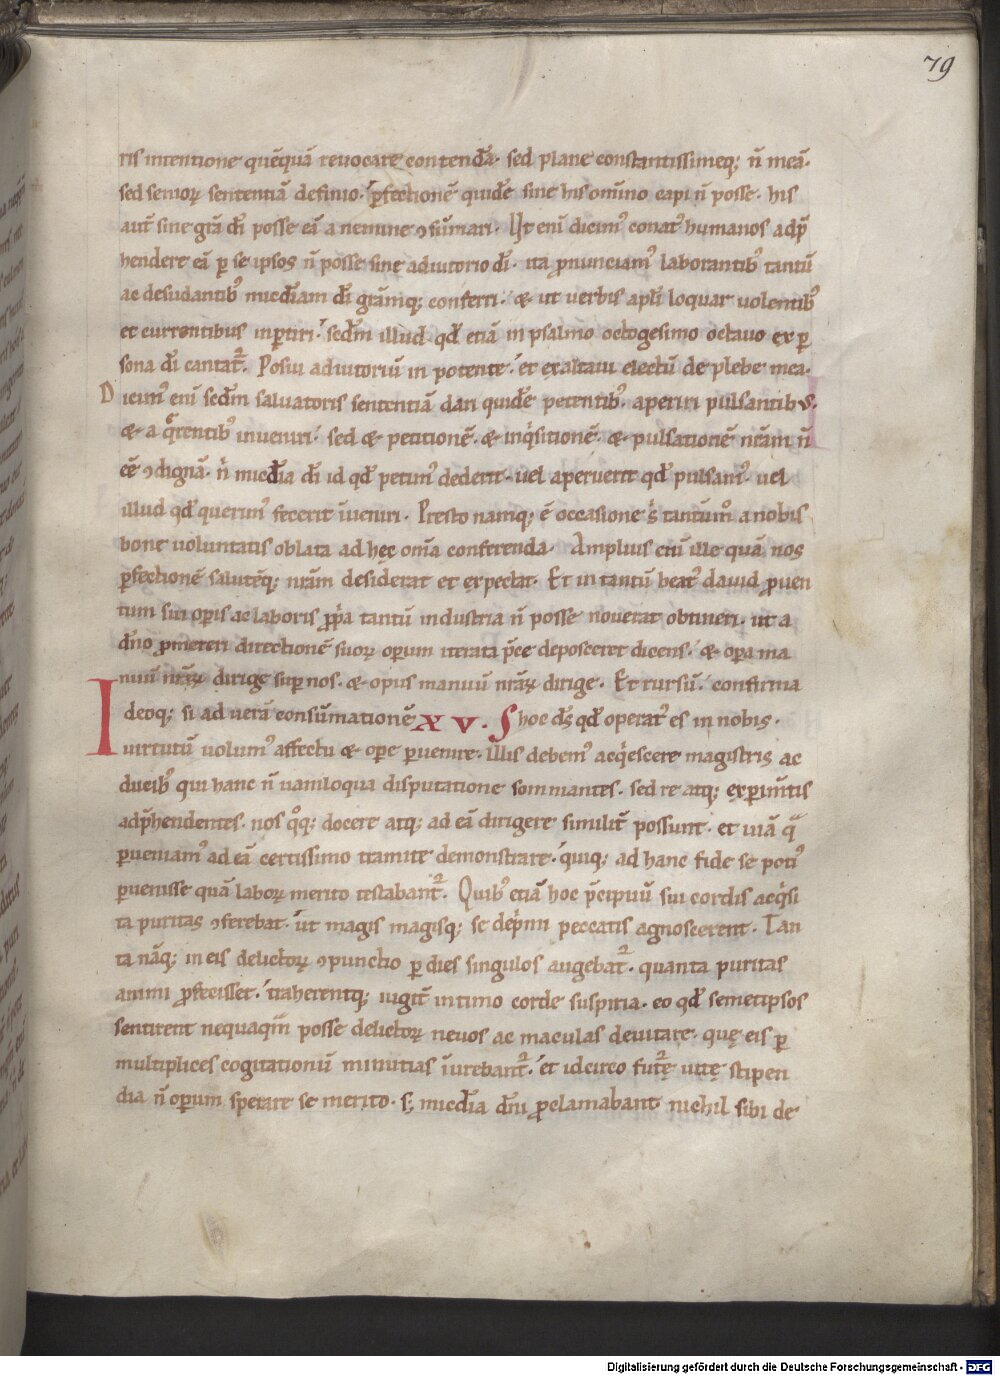 79
ris intentione quēquā reuocare contendā. sed plane constantissimeq; n̄ meā.
sed senioꝝ sententiā definio. ꝑfectionē quidē sine his omīno capi n̄ posse. his
aut̄ sine grā dī posse eā a nemine ꝯsūmari. Ut eni dicimꝰ conatꝰ humanos adp̄
hendere eā ꝑ se ipsos n̄ posse sine adiutorio dī. ita ꝓnunciamꝰ laborantibꝰ tantū
ac desudantibꝰ mīcdiam dī grāmq; conferri. & ut uerbis aplī loquar uolentibꝰ
et currentibus inꝑtiri. scdm̄ illud qd̄ etiā in psalmo octogesimo octauo ex ꝑ
sona dī cantat᷑. Posui adiutoriū in potente. et exaltaui electū de plebe mea.
Dicimꝰ eni scdm̄ saluatoris sententiā dari quidē petentibꝰ. aperiri pulsantibus.
& a q̄rentibꝰ inueniri. sed & petitionē. & inq̇sitionē. & pulsationē nrām n̄
eē ꝯdignā. n̄ mīcdia dī id qd̄ petimꝰ dederit. uel aperuerit qd̄ pulsamꝰ. uel
illud qd̄ querimꝰ fecerit īueniri. Presto namq; ē occasione s̄ tantūm̄ a nobis
bone uoluntatis oblata ad hęc om̄a conferenda. Amplius eni ille quā nos
ꝑfectionē salutēq; nrām desiderat et expectat. Et in tantū beatꝰ dauid ꝓuen
tum sui oꝑis ac laboris ꝓp̄a tantū industria n̄ posse nouerat obtineri. ut a
dn̄o ꝓmereri directionē suoꝝ oꝑum iterata p̄ce deposceret dicens. & oꝑa ma
nuū nrāꝝ dirige suꝑ nos. & opus manuū nrāꝝ dirige. Et rursū. confirma
hoc ds̄ qd̄ operatꝰ es in nobis.
Ideoq; si ad uerā consūmationē XV. S
uirtutū uolumꝰ affectu & oꝑe ꝑuenire. illis debemꝰ acq̇escere magistris ac
ducibꝰ qui hanc n̄ uaniloqua disputatione somniantes. sed re atq; exꝑim̄tis
adp̄hendentes. nos q̊q; docere atq; ad eā dirigere similit̄ possunt. et uiā qͣ
ꝑueniamꝰ ad eā certissimo tramite demonstrare. quiq; ad hanc fide se potiꝰ
ꝑuenisse quā laboꝝ merito testabant᷑. Quibꝰ etiā hoc p̄cipuū sui cordis acq̇si
ta puritas ꝯferebat. ut magis magisq; se dep̄mi peccatis agnoscerent. Tan
ta nāq; in eis delictoꝝ ꝯpunctio ꝑ dies singulos augebat᷑. quanta puritas
animi ꝓfecisset. traherentq; iugit̄ intimo corde suspiria. eo qd̄ semetipsos
sentirent nequaqm̄ posse delictoꝝ neuos ac maculas deuitare. quę eis ꝑ
multiplices cogitationū minutias īurebant᷑. et idcirco futr̄ę uitę stipen
dia n̄ oꝑum sꝑrare se merito. s; mīcdia dn̄i ꝓclamabant nichil sibi de
Digitalisierung gefördert durch die Deutsche Forschungsgemeinschaft - DFG